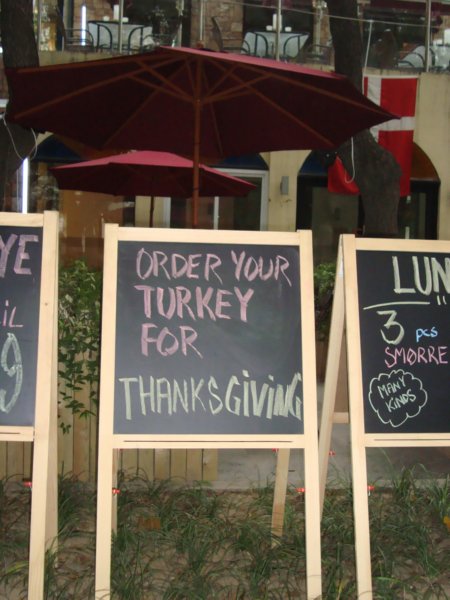 YE
IL
9
ORDER YOUR
TURKEY
FOR
THANKSGIVING
LUN
3 pcs
SMØRRE
MANY
KINDS